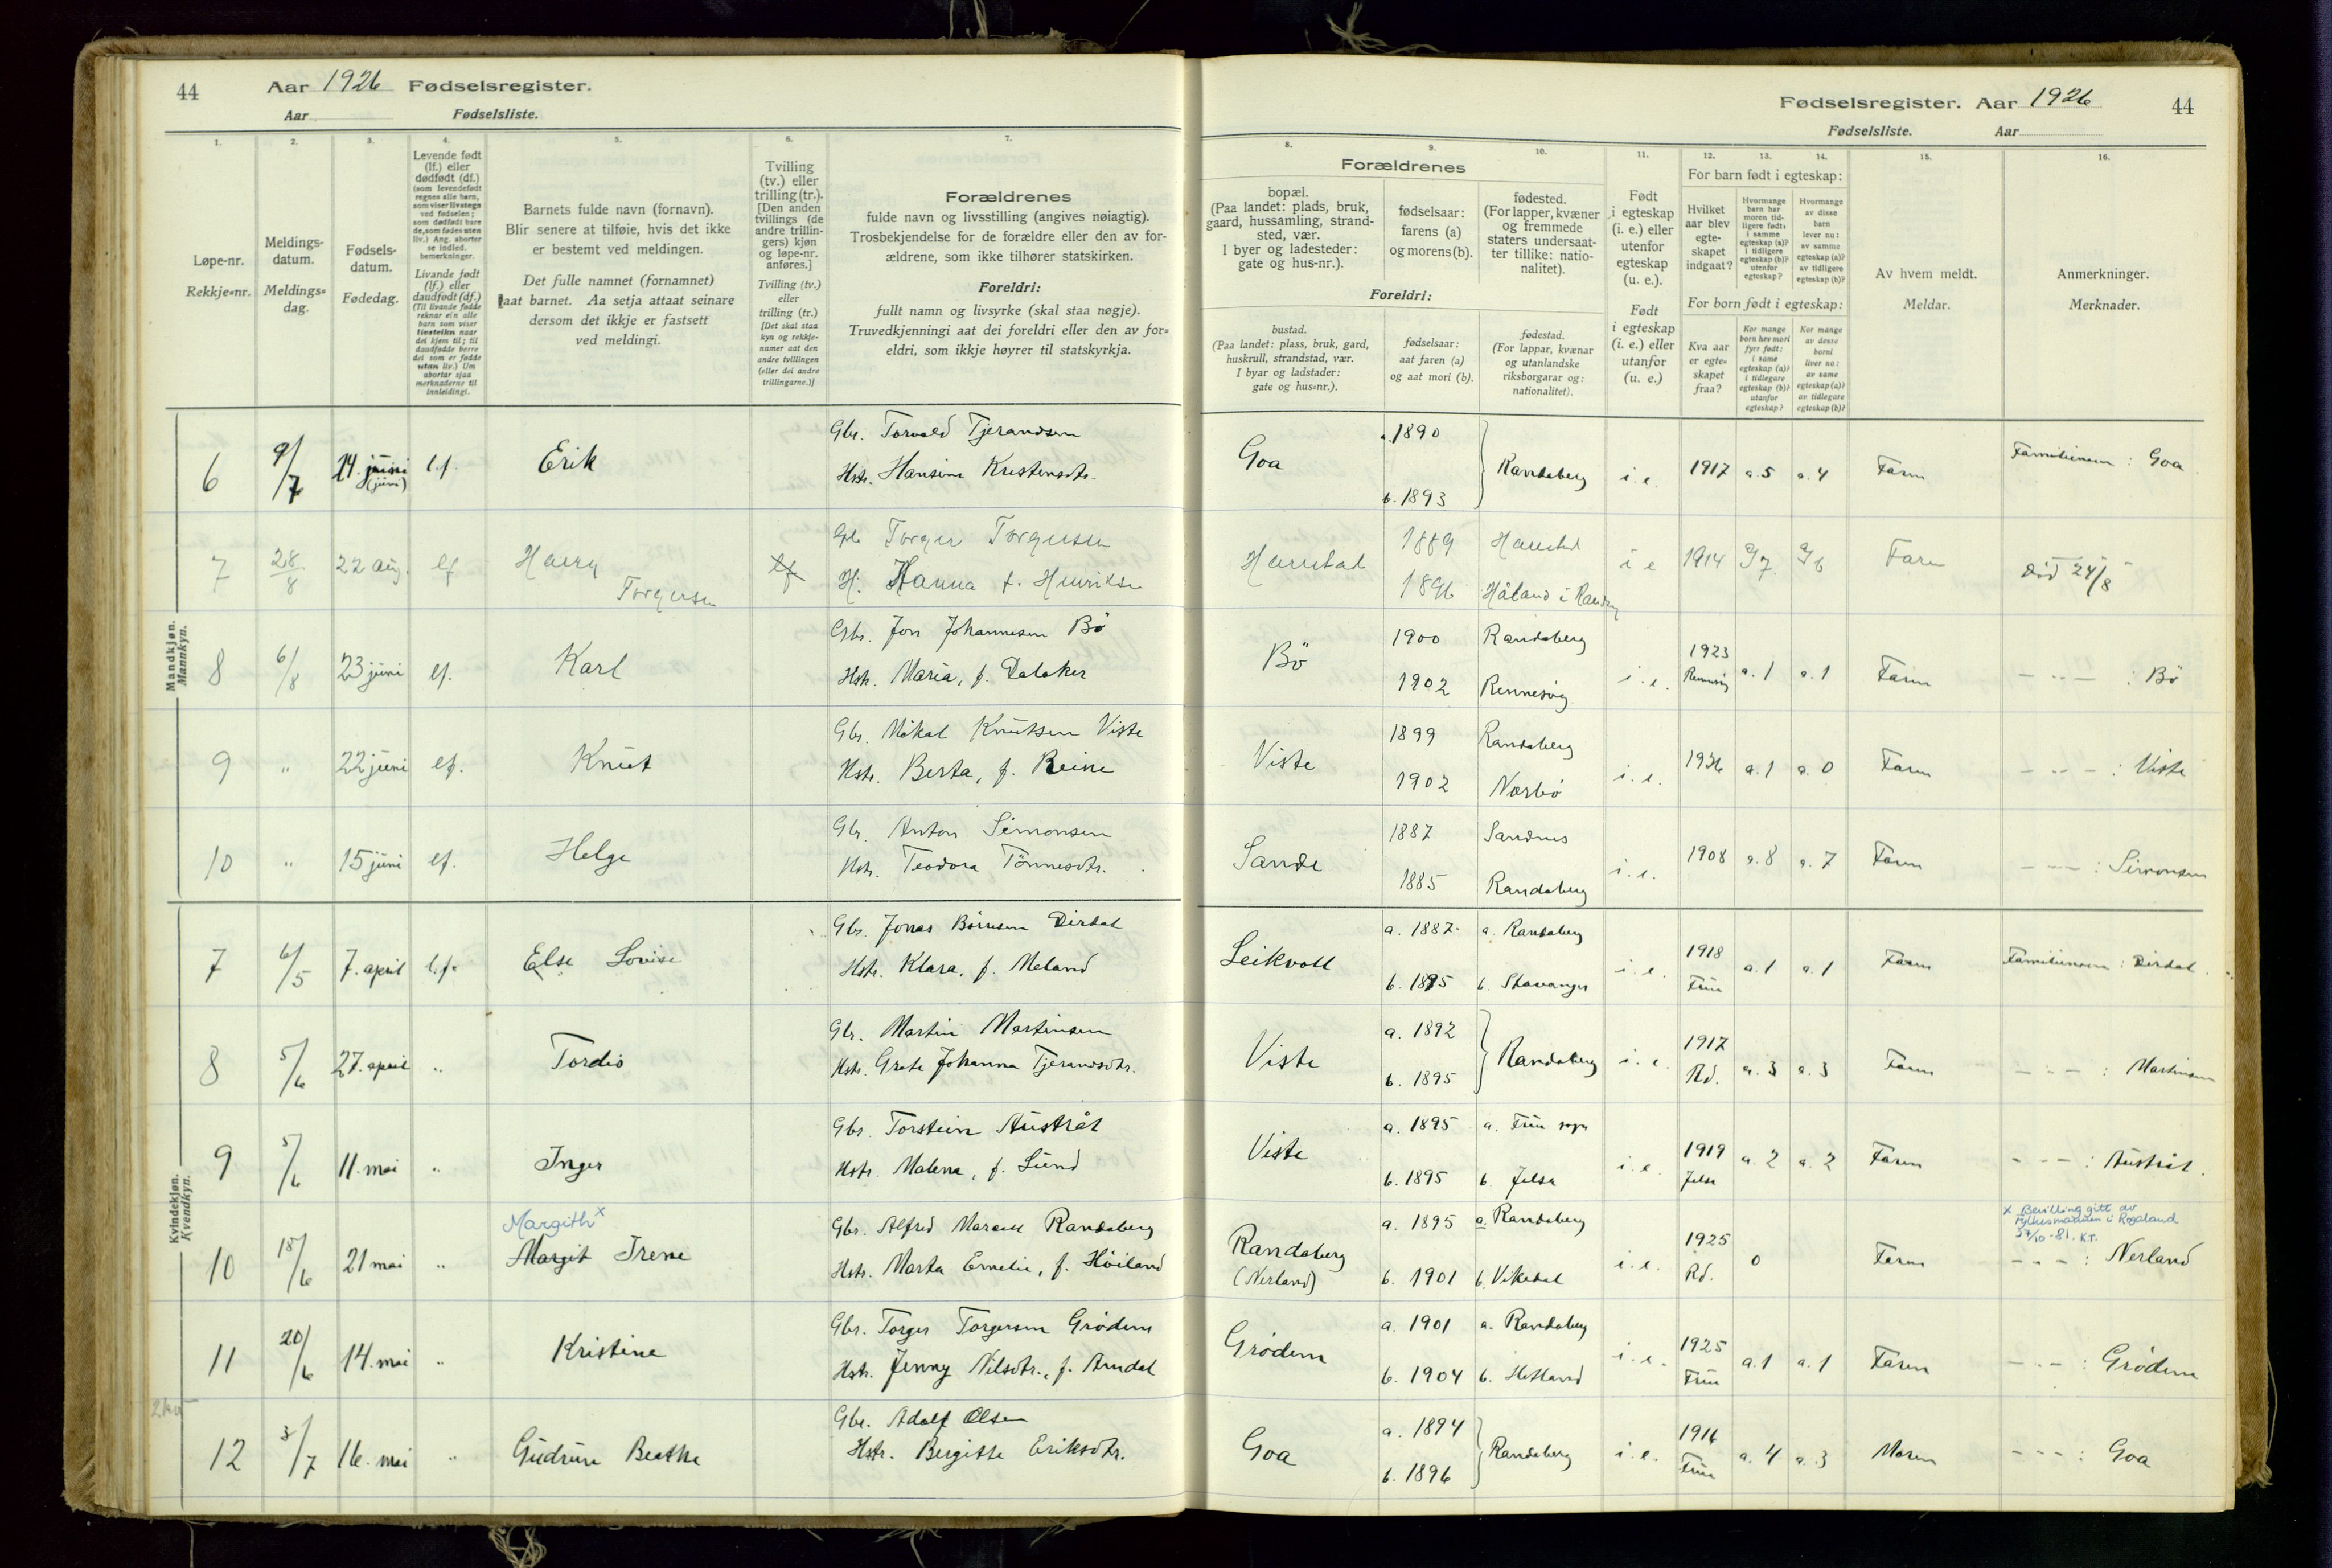 44 Aar 1926 Fødselsregister.
Aar Fødselsliste.
1. 2. 3. 4. 5. 6. 7.
Løpe-nr.
Rekkje=nr.
Meldings-
datum.
Meldings=
dag.
Fødsels-
datum.
Fødedag.
Levende født
(lf.) eller
dødfødt (df.)
(som levendefødt
regnes alle barn,
som viser livstegn
ved fødselen;
som dødfødt bare
de, som fødes uten
liv.) Ang. aborter
se indled.
bemerkninger.
Livande født
(lf.) eller
daudfødt (df.)
(Til livande fødde
reknar ein alle
barn som viser
livsteikn naar
dei kjem til; til
daudfødde berre
dei som er fødde
utan liv.) Um
abortar sjaa
merknaderne til
innleidingi.
Barnets fulde navn (fornavn).
Blir senere at tilføie, hvis det ikke
er bestemt ved meldingen.
Det fulle namnet (fornamnet)
aat barnet. Aa setja attaat seinare
dersom det ikkje er fastsett
ved meldingi.
Tvilling
(tv.) eller
trilling (tr.).
[Den anden
tvillings (de
andre trillin-
gers) kjøn
og løpe-nr.
anføres.]
Tvilling (tv.)
eller
trilling (tr.)
[Det skal staa
kyn og rekkje-
numer aat den
andre tvillingen
(eller dei andre
trillingarne.)]
Forældrenes
fulde navn og livsstilling (angives nøiagtig).
Trosbekjendelse for de forældre eller den av for-
ældrene, som ikke tilhører statskirken.
Foreldri:
fullt namn og livsyrke (skal staa nøgje).
Truvedkjenningi aat dei foreldri eller den av for=
eldri, som ikkje høyrer til statskyrkja.
Mandkjøn.
Mannkyn.
6 9/7 14. juni (juni) l.f. Erik
Gbr. Torvald Tjerandsen
Hstr. Hansine Kristensdtr.
7 28/8 22 aug. lf Harry Torgersen
Gb Torger Torgersen
H. Hanna f. Henriksen
8 6/8 23 juni lf. Karl
Gbr. Jon Johannesen Bø
Hstr. Maria, f. Dalaker
9 " 22 juni lf. Knut
Gbr. Mikal Knutsen Viste
Hstr. Berta, f. Reine
10 " 15 juni lf. Helge
Gbr. Anton Simonsen
Hstr. Teodora Tønnesdtr.
Kvindekjøn.
Kvendkyn.
7 6/5 7. april l.f. Else Lovise
Gbr. Jonas Børresen Dirdal
Hstr. Klara, f. Meland
8 5/6 27. april " Tordis
Gbr. Martin Martinsen
Hstr. Grete Johanna Tjerandsdtr.
9 5/6 11. mai " Inger
Gbr. Torstein Austråt
Hstr. Malena, f. Lund
10 18/6 21 mai " Margith x
Margit Irene
Gbr. Alfred Marcell Randaberg
Hstr. Marta Emelie, f. Høiland
11 20/6 14. mai " Kristine
Gbr. Torger Torgersen Grødem
Hstr. Jenny Nilsdtr., f. Arndal
12 3/7 16. mai " Gudrun Beathe
Gbr. Adolf Olsen
Hstr. Bergitte Eriksdtr.
Fødselsregister. Aar 1926 44
Fødselsliste. Aar
8. 9. 10. 11. 12. 13. 14. 15. 16.
Forældrenes
bopæl.
(Paa landet: plads, bruk,
gaard, hussamling, strand-
sted, vær.
I byer og ladesteder:
gate og hus-nr.).
fødselsaar:
farens (a)
og morens (b).
fødested.
(For lapper, kvæner
og fremmede
staters undersaat-
ter tillike: natio-
nalitet).
Foreldri:
bustad.
(Paa landet: plass, bruk, gard,
huskrull, strandstad, vær.
I byar og ladstader:
gate og hus=nr.).
fødselsaar:
aat faren (a)
og aat mori (b).
fødestad.
(For lappar, kvænar
og utanlandske
riksborgarar og:
nationalitet).
Født
i egteskap
(i. e.) eller
utenfor
egteskap
(u. e.).
Født
i egteskap
(i. e.) eller
utanfor
(u. e.)
For barn født i egteskap:
Hvilket
aar blev
egte-
skapet
indgaat?
Hvormange
barn har
moren tid-
ligere født:
i samme
egteskap (a)?
i tidligere
egteskap (b)?
utenfor
egteskap?
Hvormange
av disse
barn
lever nu:
av samme
egteskap (a)?
av tidligere
egteskap (b)?
For born født i egteskap:
Kva aar
er egte=
skapet
fraa?
Kor mange
born hev mori
fyrr født:
i same
egteskap (a)?
i tidlegare
egteskap (b)?
utanfor
egteskap?
Kor mange
av desse
borni
liver no:
av same
egteskap (a)?
av tidlegare
egteskap (b)?
Av hvem meldt.
Meldar.
Anmerkninger.
Merknader.
Goa a. 1890 b. 1893 Randaberg i. e. 1917 a. 5 a. 4 Faren Familienavn: Goa
Harestad 1889 Harestad
1896 Håland i i e 1914 Faren død 24/8
Bø 1900 Randaberg
1902 Rennesøy i. e. 1923 a. 1 a. 1 Faren — " — : Bø
Viste 1899 Randaberg
1902 Nærbø i. e. a. 1 a. 0 Faren — " — : Viste
Sande 1887 Sandnes
1885 Randaberg i. e. 1908 a. 8 a. 7 Faren — — : Simonsen
Leikvoll a. 1887 a. Randaberg
b. 1895 b. Stavanger i. e. 1918 Frue a. 1 a. 1 Faren Familienavn: Dirdal
Viste a. 1892 b. 1895 Randaberg i. e. 1917 Rd. a. 3 a. 3 Faren — " — : Martinsen
Viste a. 1895 a. Frue sogn
b. 1895 b. Jelsa i. e. 1919 Jelsa a. 2 a. 2 Faren — — : Austråt.
Randaberg (Nerland) a. 1895 a. Randaberg
b. 1901 b. Vikedal i. e. 1925 Rd. 0 Faren
x Bevilling gitt av
Fylkesmannen i Rogaland
/10-81. K.T.
— — : Nerland
Grødem a. 1901 a. Randaberg
b. 1904 b. Hetland i. e. 1925 Frue a. 1 a. 1 Faren — " — : Grødem
Goa a. 1894 b. 1896 Randaberg i. e. 1916 Frue a. 4 a. 3 Moren — — : Goa